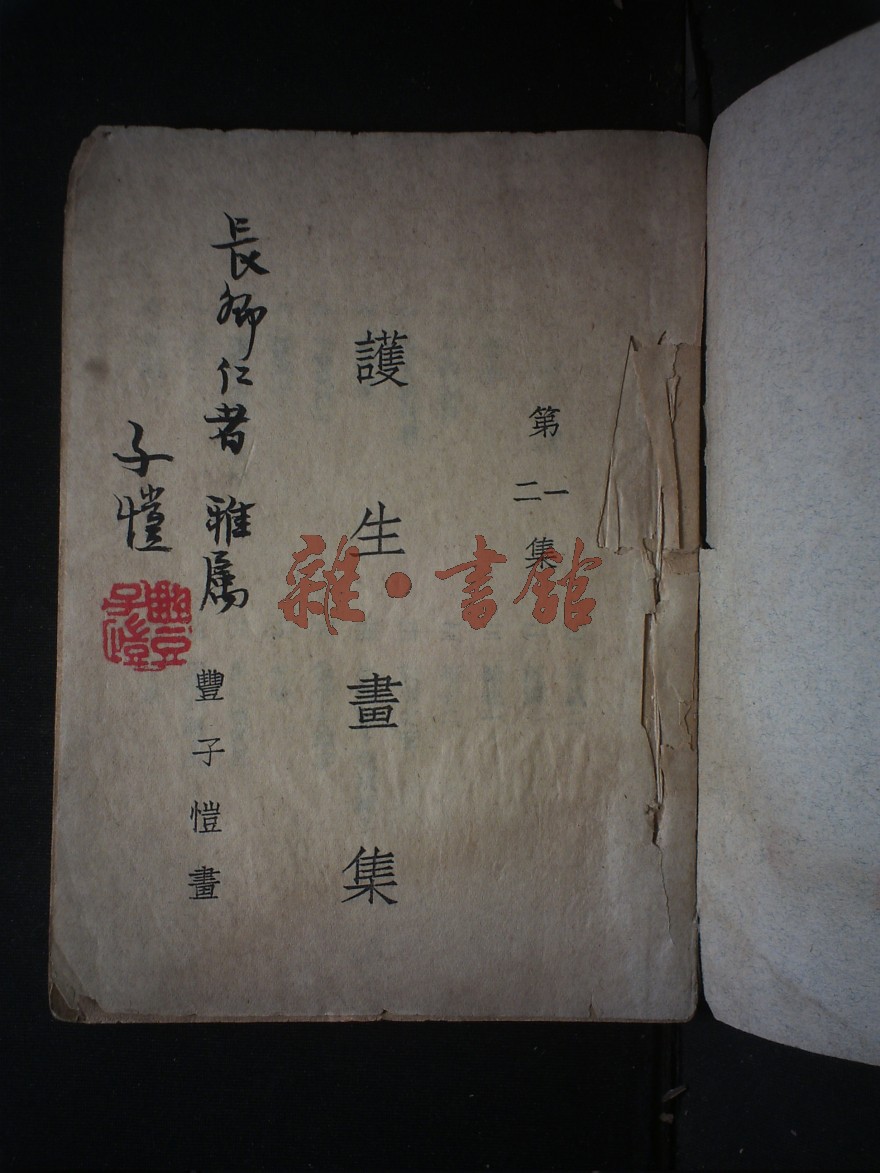 第一二集
護生畫集
長卿仁者 雅属
豐子愷畫
子愷
豐子愷
雜·書館